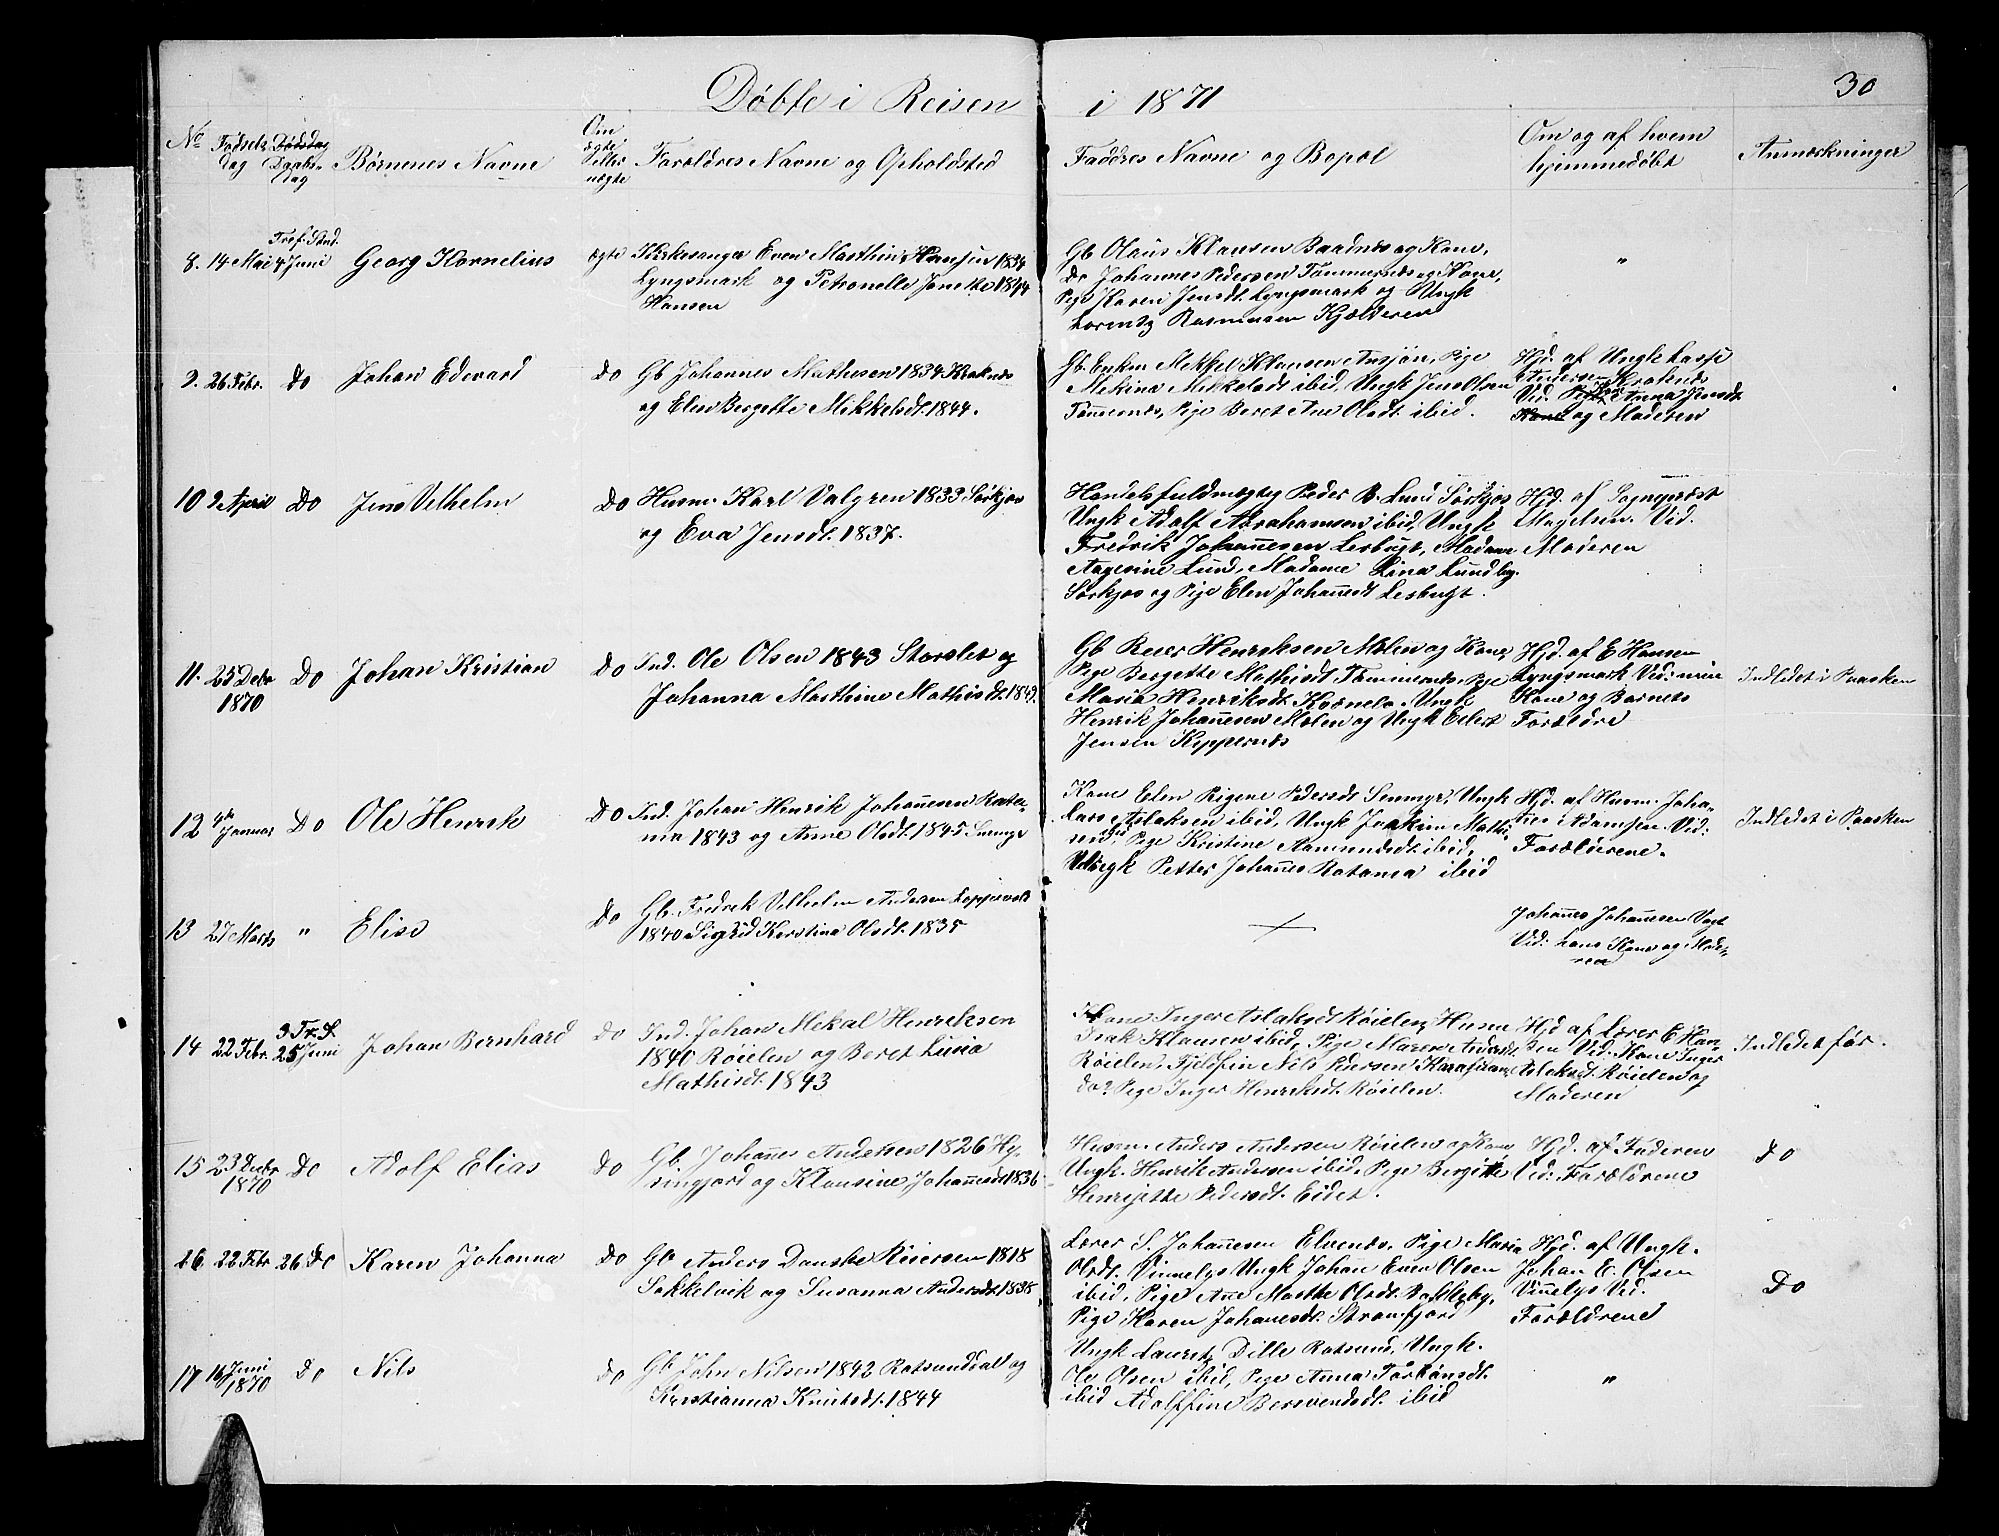 Døbte i Reisen i 1871
30
No
Fødsels dag
Dødsdag Daabs- dag
Børnenes Navne
Om ægte eller uægte
Forældres Navne og Opholdsted
Faddres Navne og Bopæl
Om og af hvem hjemmedøbt
Anmærkninger
8. 14 Mai Tref. Sønd. 4 Juni Georg Kornelius ægte
Kirkesanger Even Marthin Hansen 1834
Lyngsmark og Petronelle Jensine 1844
Hansen
Gb Olaus Klausen Baadnæs og Kone,
Do Johannes Pedersen Tømmernæs og Kone,
Pige Karen Jensdt. Lyngsmark og Ungk
Lorentz Rasmussen Kjælderen
"
9. 26 Febr. Do Johan Edvard Do
Gb Johannes Mathesen 1834 Kraknæs
og Elen Bergette Mikkelsdt. 1844.
Gb. Enkem Mekkel Klausen, Pige
Mekina Mikkelsdt ibid, Ungk Jens Olsen
Tømmernæs, Pige Beret Ane Olsdt. ibid.
Hjd. af Ungk Lasse
Andersen Kraknæs
Vid. Pige Anna Jensdt.
Kone og Moderen
10 9 April Do Jens Vilhelm Do
Husm. Karl Valgren 1833 Sørkjos
og Eva Jensdt. 1837.
Handelsfuldmægtig Peder B. Lund Sørkjos
Ungk Adolf Abrahamsen ibid, Ungk
Fredrik Johannesen Lesbugt, Madame
Aagesine Lund, Madame Lina Lundbg.
Sørkjos og Pige Elen Johannesdt Lesbugt.
Hjd. af Sognepræst
Magelsen. Vid.
Moderen
11. 25 Debr 1870 Do Johan Kristian Do
Ind. Ole Olsen 1843 Storslet og
Johanna Marthine Mathisdt. 1849.
Gb Reier Henriksen Mælen og Kone,
Pige Bergette Mathisdt Tømmernæs, Pige
Maria Henriksdt. Ungk
Henrik Johannesen Mælen og Ungk Eilert
Jensen Kippernæs
Hjd. af E Hansen
Lyngsmark Vid: min
Kone og Barnets
Forældre
Indledet i Paasken
12 4de Januar Do Ole Henrik Do
Ind. Johan Henrik Johannesen Rata-
ma 1843 og Anne Olsdt. 1845 Snemyr
Kone Elen Rigene Pedersdt Snemyr, Ungk
Lars Aslaksen ibid, Ungk Joakim Mathi-
ibid, Pige Kristine Aamundsdt. ibid,
Ungk Petter Johannes Ratama ibid
Hjd. af Husm. Joha-
nes Adamsen. Vid:
Forælderene.
Indledet i Paasken
13 27 Marts " Elise Do
Gb. Fredrik Vilhelm Andersen Loppevold
1840 Sigrid Kerstina Olsdt. 1835
×
Johannes Johannesen Vagt
Vid: hans Kone og Mode-
ren
14 22 Febr. 3 Tr. S. 25 Juni Johan Bernhard Do
Ind. Johan Mekal Henriksen
1840 Røielen og Beret Lusia
Mathisdt. 1843
Kone Inger Aslaksdt Røielen, Husm
Isak Klausen ibid, Pige Maren Andersdt.
Røielen, Fjeldfin Nils Pedersen
do? Pige Inger Henriksdt. Røielen.
Hjd af Lærer E Han-
sen Vid. Kone Inger
Aslaksdt. Røielen og
Moderen
Indledet før.
15 23 Decbr 1870 Do Adolf Elias Do
Gb. Johannes Andersen 1826 Hy-
ringfjord og Klausine Johannesdt 1836
Husm. Anders Andersen Røielen og Kone
Ungk. Henrik Andersen ibid, Pige Bergitte
Henrijette Pedersdt. Eidet.
Hjd. af Faderen
Vid: Forældrene
Do
16 22 Febr 26 Do Karen Johanna Do
Gb Anders Danske Reiersen 1818
Sækkelvik og Susanna Andersdt. 1838
Lærer S. Johannesen Elvenæs, Pige Maria
Olsdt. Vinnelys Ungk Johan Even Olsen
ibid, Pige Ane Marthe Olsdt. Bakkeby,
Pige Karen Johannesdt. Straumfjord
Hjd. af Ungk.
Johan E. Olsen
Vinnelys Vid.
Forældrene
Do
17 16 Juni 1870 Do Nils Do
Gb John Nilsen 1842 Rotsunddal og
Kristianna Knutsdt. 1844
Ungk Lauretz Dille Rotsund, Ungk.
Ole Olsen ibid, Pige Anna Torbønsdt.
ibid Adolffine Berevendsdt. ibid
"